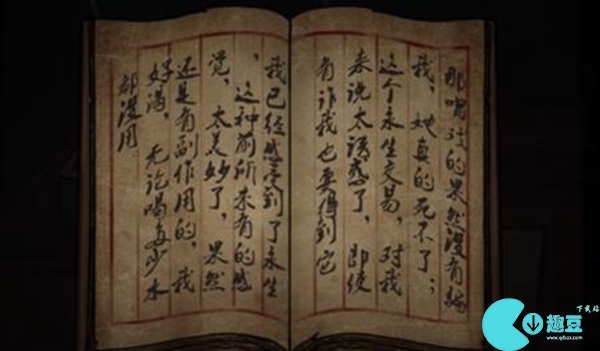 那唱戏的果然没有骗
我，她真的死不了；
这个永生交易，对我
来说太诱惑了，即使
有诈我也要得到它
我已经感受到了永生
，这种前所未有的感
觉，太美妙了，果然
还是有副作用的，我
好渴，无论喝多少水
都没用。
下载站
趣豆